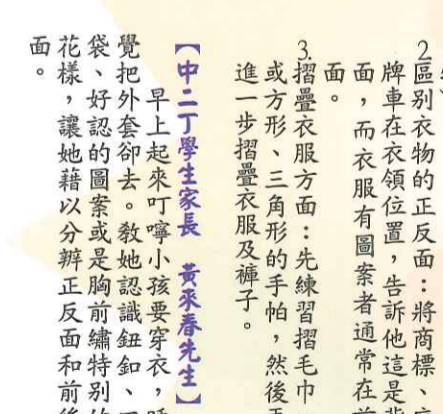 2區別衣物的正反面：將商標、
牌車在衣領位置，告訴他這是背
面，而衣服有圖案者通常在前
面。
3.摺疊衣服方面：先練習摺毛巾
或方形、三角形的手帕，然後再
進一步摺疊衣服及褲子。
【中二丁學生家長　黃來春先生】
早上起來叮嚀小孩要穿衣，睡
覺把外套卻去。教她認識鈕釦、口
袋、好認的圖案或是胸前繡特別的
花樣，讓她藉以分辨正反面和前後
面。